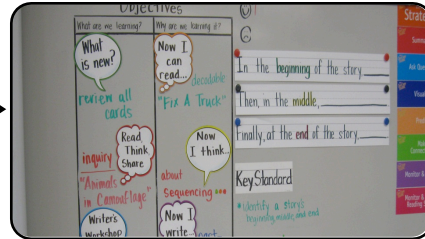 Objectives
What are we learning?
Why are we learning it?
What
is new?
review all
cards
Now I
can
read...
decodable
"Fix A Truck"
Read,
Think,
Share
inquiry
"Animals
in Camouflage"
Now
I think...
about
Sequencing...
Writer's
Workshop
Now I
write...
In the beginning of the story,
Then, in the middle,
Finally, at the end of the story,
Key Standard
*Identify a story's
beginning, middle, and end
Strate
Summa
Ask Ques
Visual
Monitor &
Monitor &
Reading S